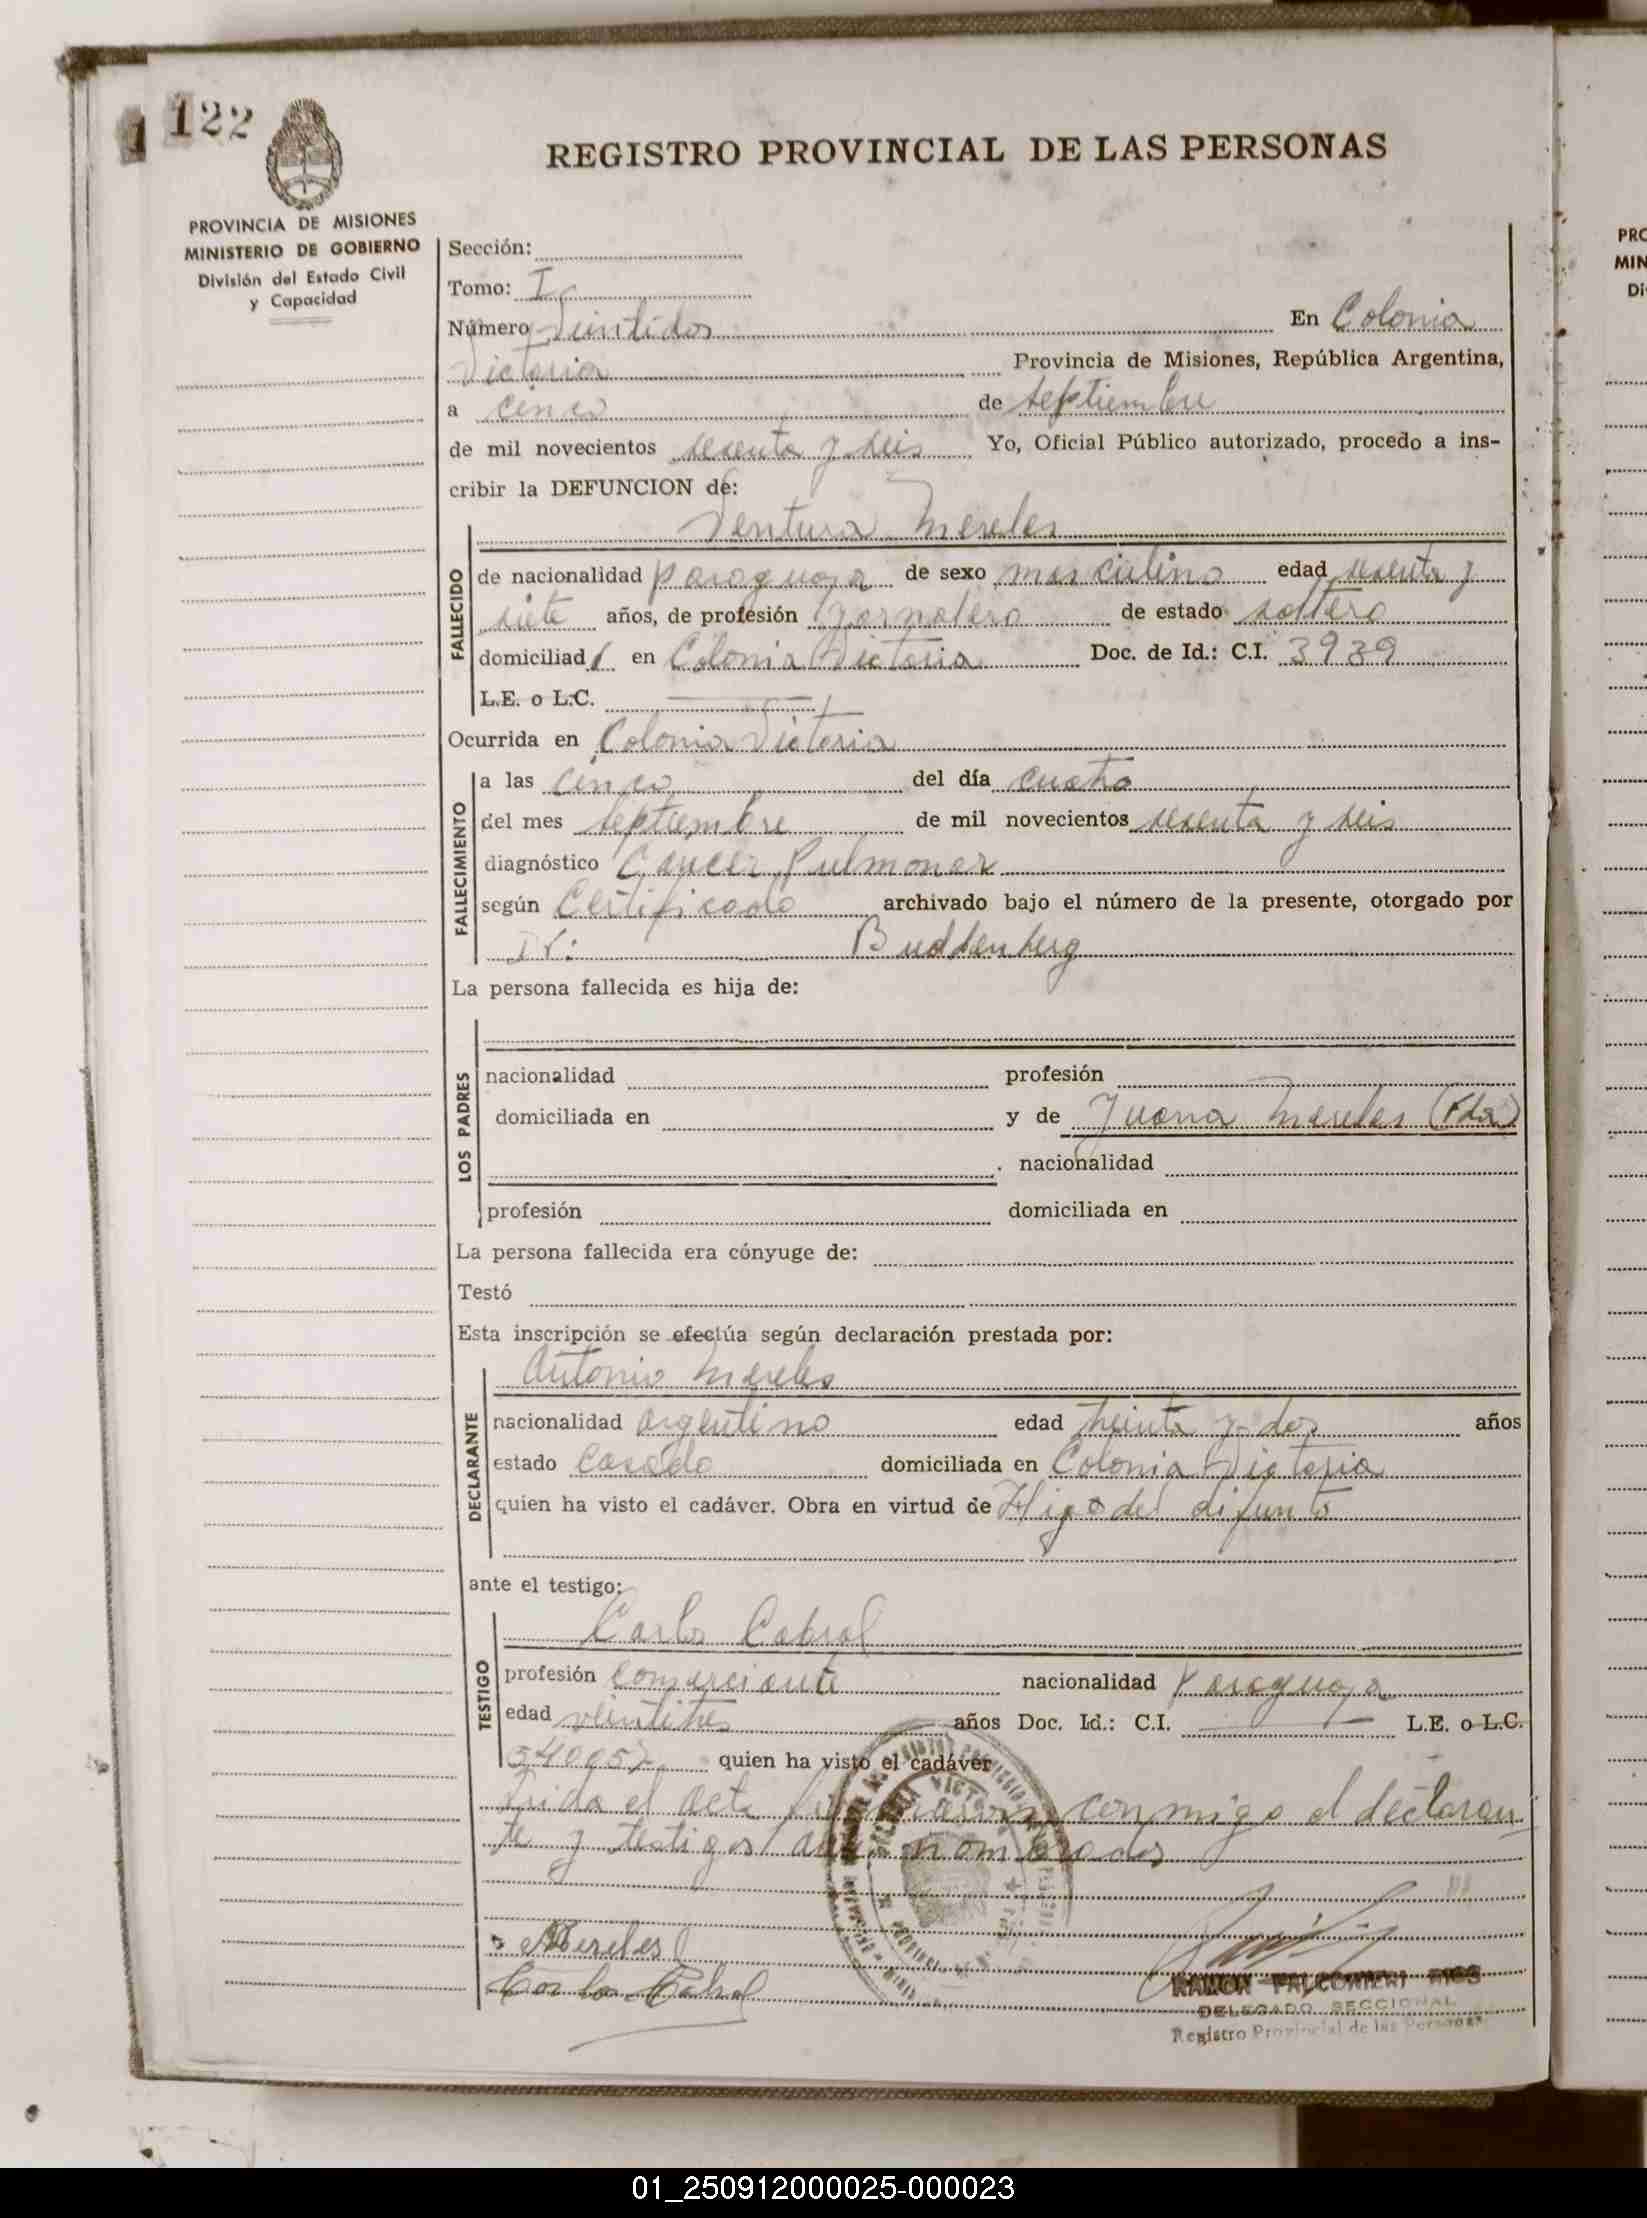 122
REGISTRO PROVINCIAL DE LAS PERSONAS
PROVINCIA DE MISIONES
MINISTERIO DE GOBIERNO
División del Estado Civil
y Capacidad
Sección:
Tomo: I
Número Veintidos En Colonia
Victoria Provincia de Misiones, República Argentina,
a cinco de septiembre
de mil novecientos sesenta y seis Yo, Oficial Público autorizado, procedo a ins-
cribir la DEFUNCION de:
Ventura Mereles
FALLECIDO
de nacionalidad paraguaya de sexo masculino edad sesenta y
siete años, de profesión jornalero de estado soltero
domiciliad en Colonia Victoria Doc. de Id.: C.I. 3939
L.E. o L.C.
Ocurrida en Colonia Victoria
FALLECIMIENTO
a las cinco del día cuatro
del mes septiembre de mil novecientos sesenta y seis
diagnóstico Cáncer Pulmonar
según Certificado archivado bajo el número de la presente, otorgado por
Dr: Buddenberg
La persona fallecida es hija de:
LOS PADRES
nacionalidad profesión
domiciliada en y de Juana Mereles (Fda)
nacionalidad
profesión domiciliada en
La persona fallecida era cónyuge de:
Testó
Esta inscripción se efectúa según declaración prestada por:
Antonio Mereles
DECLARANTE
nacionalidad argentino edad treinta y dos años
estado Casado domiciliada en Colonia Victoria
quien ha visto el cadáver. Obra en virtud de Higo del difunto
ante el testigo:
Carlos Cabral
TESTIGO
profesión comerciante nacionalidad Paraguaya
edad veintitres años Doc. Id.: C.I. L.E. o L.C.
quien ha visto el cadáver
Leida el acta conmigo el declaran
te y testigos nombrados
Mereles
Carlos Cabral
RAMON FALCONIERI RIOS
DELEGADO SECCIONAL
Registro Provincial de las Personas
PRO
MIN
Di
01_250912000025-000023